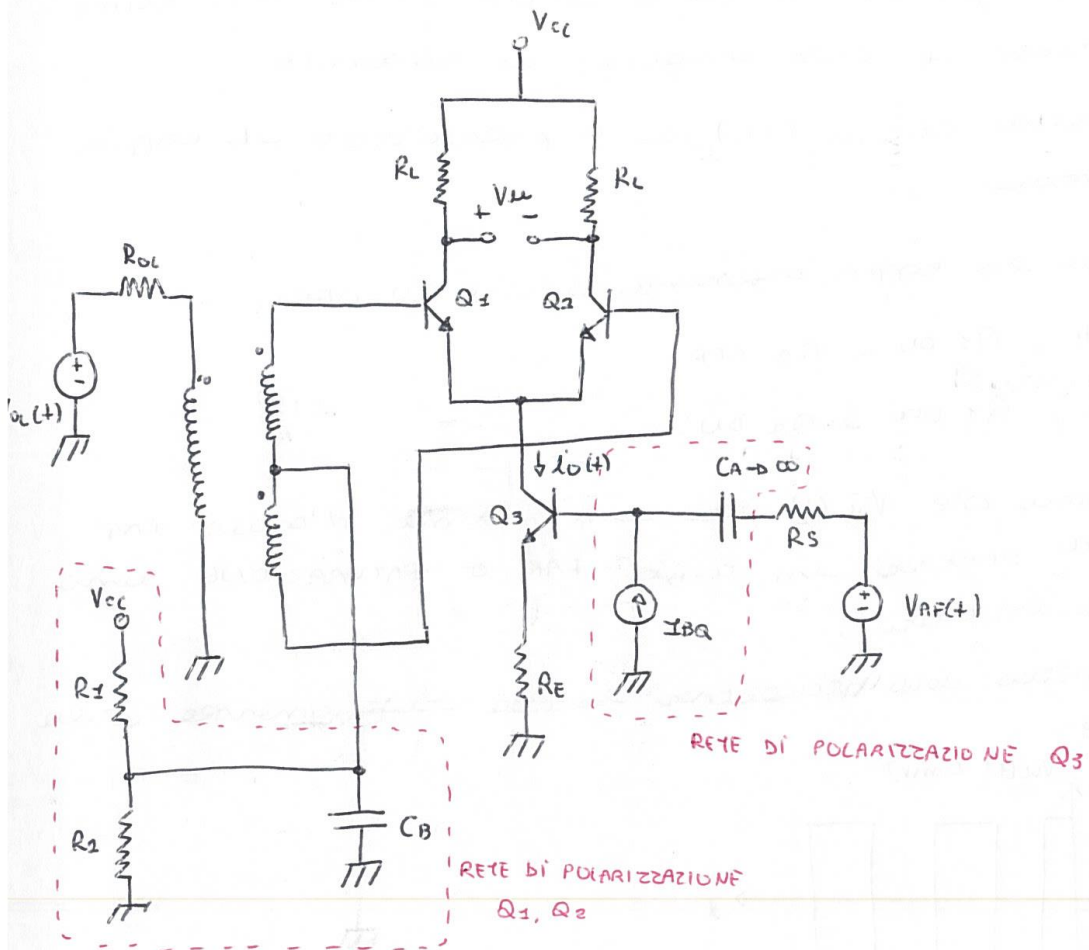 Vcc
RL
RL
+ Vu -
ROL
Q1
Q2
+
-
OL(t)
io(t)
CA→∞
Q3
RS
Vcc
IBQ
+
-
VAF(t)
R1
RE
RETE DI POLARIZZAZIONE Q3
R2
CB
RETE DI POLARIZZAZIONE
Q1, Q2